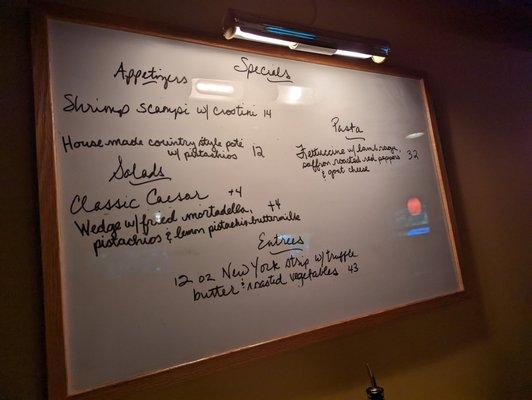 Specials
Appetizers
Shrimp scampi w/ crostini 14
House made country style paté
w/ pistachios 12
Salads
Classic Caesar +4
Wedge w/ fried mortadella, +4
pistachios & lemon pistachio buttermilk
Pasta
Fettuccine w/ lamb ragu,
saffron roasted red peppers 32
& goat cheese
Entrees
12 oz New York strip w/ truffle
butter & roasted vegetables 43